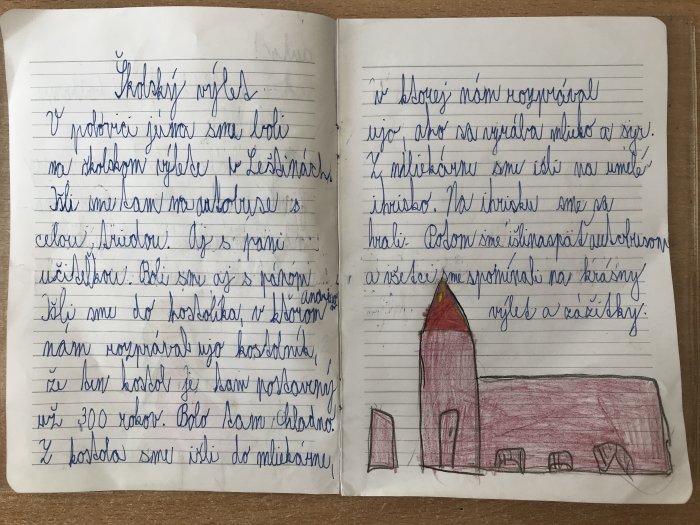 Školský výlet
V polovici júna sme boli
na školskom výlete v Leštinách.
Išli sme tam na autobuse s
celou triedou. Aj s pani
učiteľkou. Boli sme aj s pánom
Išli sme do kostolíka, v ktorom
nam rozprával ujo kostolník,
že ten kostol je tam postavený
už 300 rokov. Bolo tam chladno.
Z kostola sme išli do mliekárne,
v ktorej nám rozprával
ujo, ako sa vyrába mlieko a syr.
Z mliekárne sme išli na umelé
ihrisko. Na ihrisku sme sa
hrali. Potom sme išli naspäť autobusom
a všetci sme spomínali na krásny
výlet a zážitky.